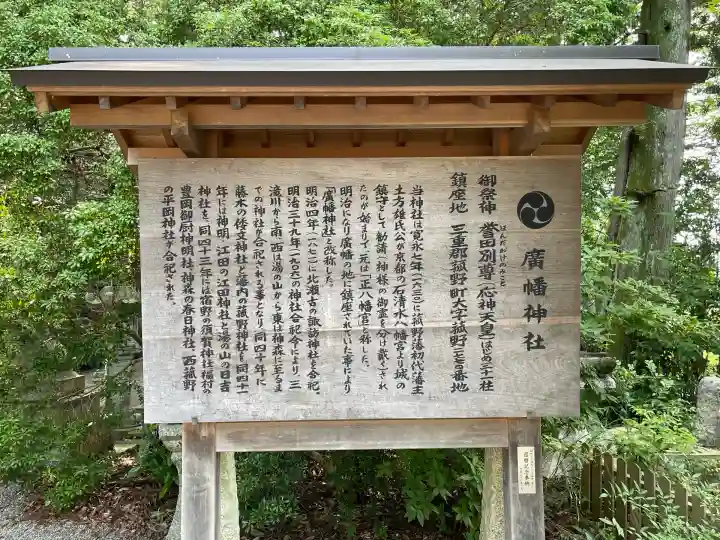 廣幡神社
ほんだわけのみこと
御祭神　誉田別尊(応神天皇)ほか三十一社
鎮座地　三重郡菰野町大字菰野一七七四番地
当神社は寛永七年(一六三〇)に菰野藩初代藩主
土方雄氏公が京都の石清水八幡宮より城の
鎮守として勧請(神様の御霊を分け戴く)され
たのが始まりで、元は「正八幡宮」と称した。
明治になり廣幡の地に鎮座されていた事により
「廣幡神社」と改称した。
明治四年(一八七一)に北瀬古の諏訪神社を合祀。
明治三十九年(一九〇六)の神社合祀令により、三
滝川から南、西は湯の山から東は神森に至るま
での神社を合祀される事となり、同四十年に
藤木の倭文神社と海内の菰野神社を、同四十一
年には神明、江田の江田神社と湯の山の日吉
神社を、同四十三年には宿野の須賀神社、福村の
豊岡御厨神明社、神森の春日神社、西菰野
の平岡神社が合祀された。